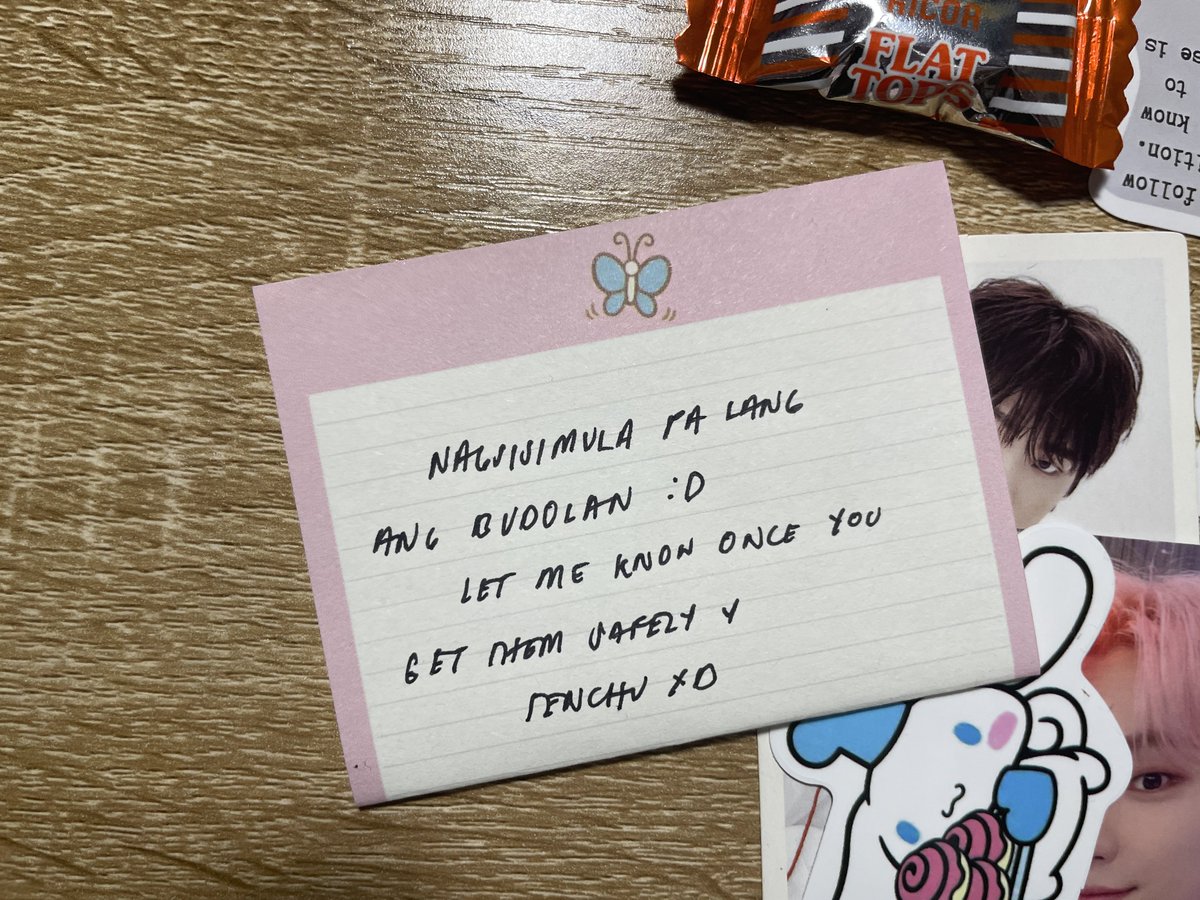 RICOA
FLAT
TOPS
NAGSISIMULA PA LANG
ANG BUDOLAN :D
LET ME KNOW ONCE YOU
GET THEM SAFELY Y
TENCHU XD
follow
know
to
is